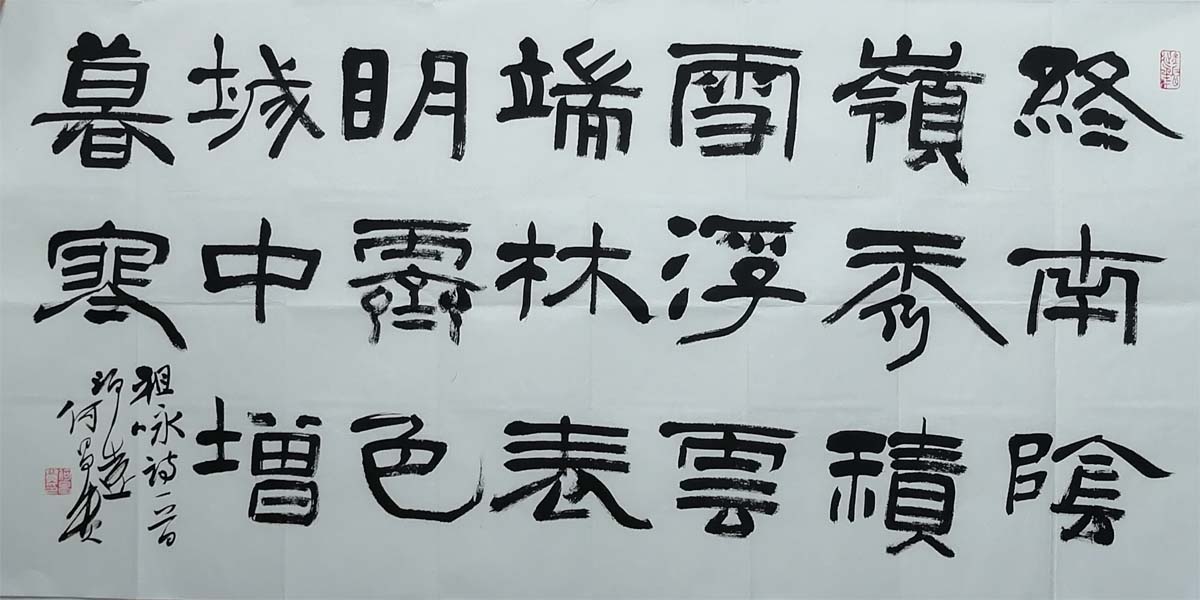 終南陰
嶺秀積
雪浮雲
端林表
明霽色
城中增
暮寒
祖咏诗一首
何